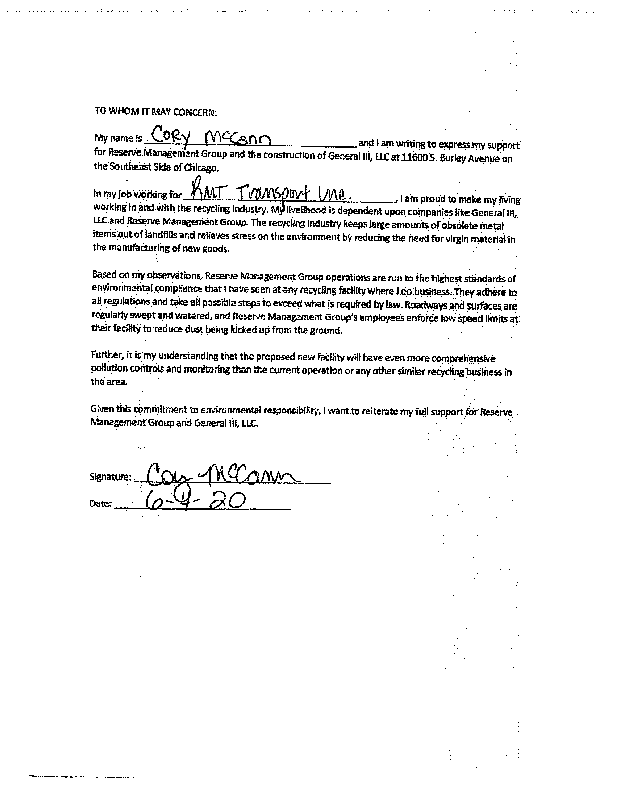 TO WHOM IT MAY CONCERN:
My name is Cory McCann and I am writing to express my support
for Reserve Management Group and the construction of General III, LLC at 11600 S. Burley Avenue on
the Southeast Side of Chicago.
In my job working for RMT Transport Inc , I am proud to make my living
working in and with the recycling industry. My livelihood is dependent upon companies like General III,
LLC and Reserve Management Group. The recycling industry keeps large amounts of obsolete metal
items out of landfills and relieves stress on the environment by reducing the need for virgin material in
the manufacturing of new goods.
Based on my observations, Reserve Management Group operations are run to the highest standards of
environmental compliance that I have seen at any recycling facility where I do business. They adhere to
all regulations and take all possible steps to exceed what is required by law. Roadways and surfaces are
regularly swept and watered, and Reserve Management Group's employees enforce low speed limits at
their facility to reduce dust being kicked up from the ground.
Further, it is my understanding that the proposed new facility will have even more comprehensive
pollution controls and monitoring than the current operation or any other similar recycling business in
the area.
Given this commitment to environmental responsibility, I want to reiterate my full support for Reserve
Management Group and General III, LLC.
Signature: Cory McCann
Date: 6-9-20